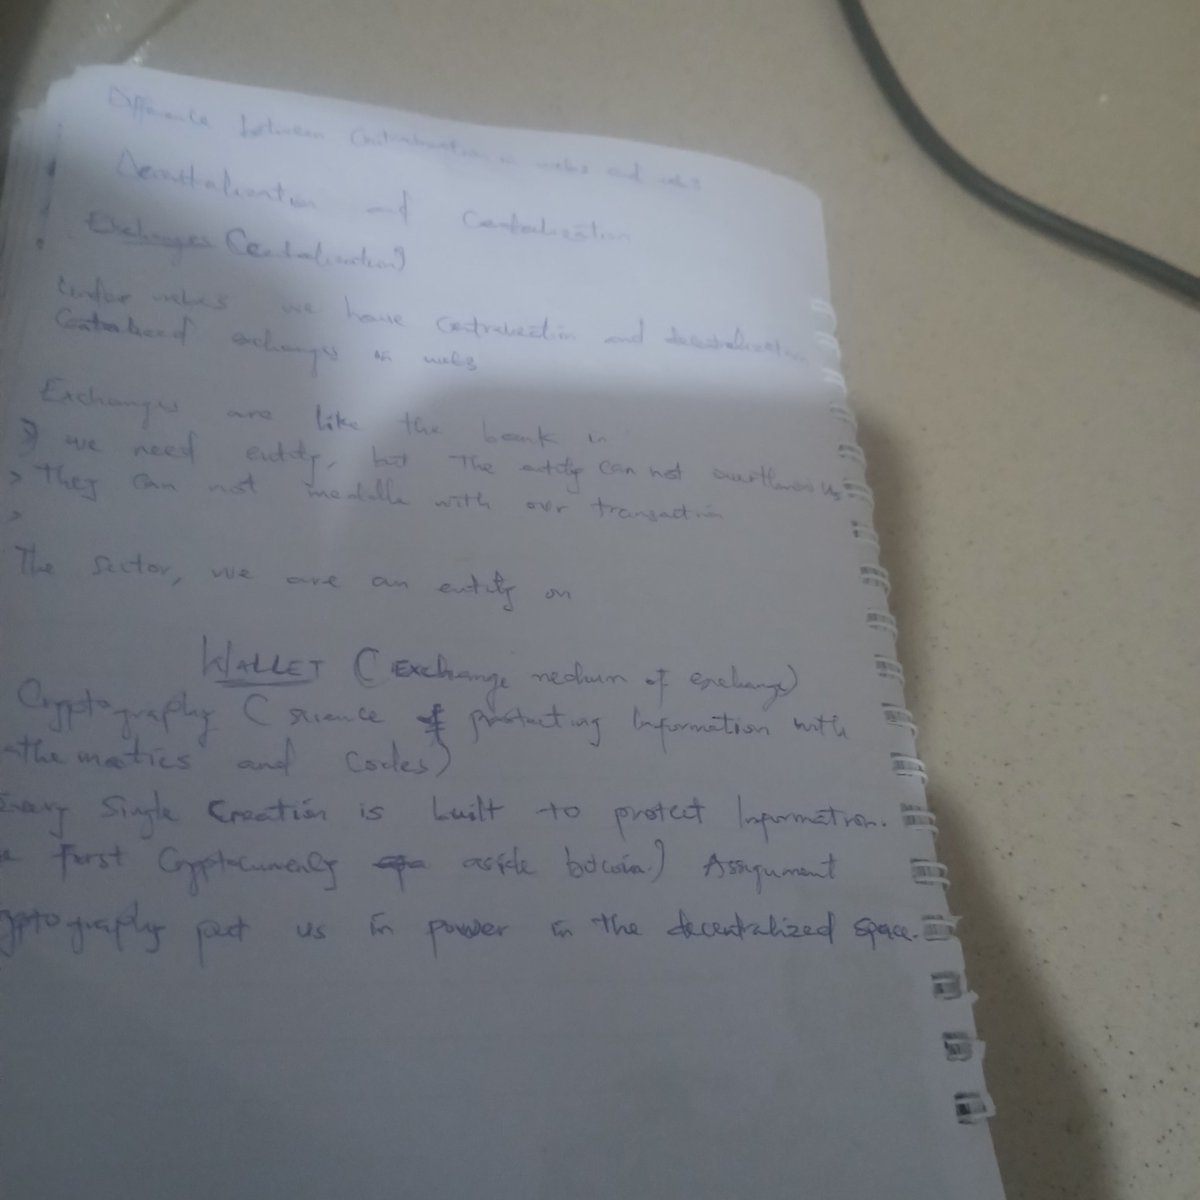 Difference between Centralization web2 and web3
Decentralization and Centralization
Exchanges (Centralization)
Under web3 we have centralization and decentralization
Centralized exchanges in web3
Exchanges are like the bank in
> we need entity, but the entity can not us
> They can not meddle with our transaction
>
The sector, we are an entity on
WALLET (Exchange medium of exchange)
Cryptography (science of protecting Information with
thematics and codes)
Every Single Creation is built to protect Information.
First Cryptocurrency aside bitcoin) Assignment
yptography put us in power in the decentralized space.